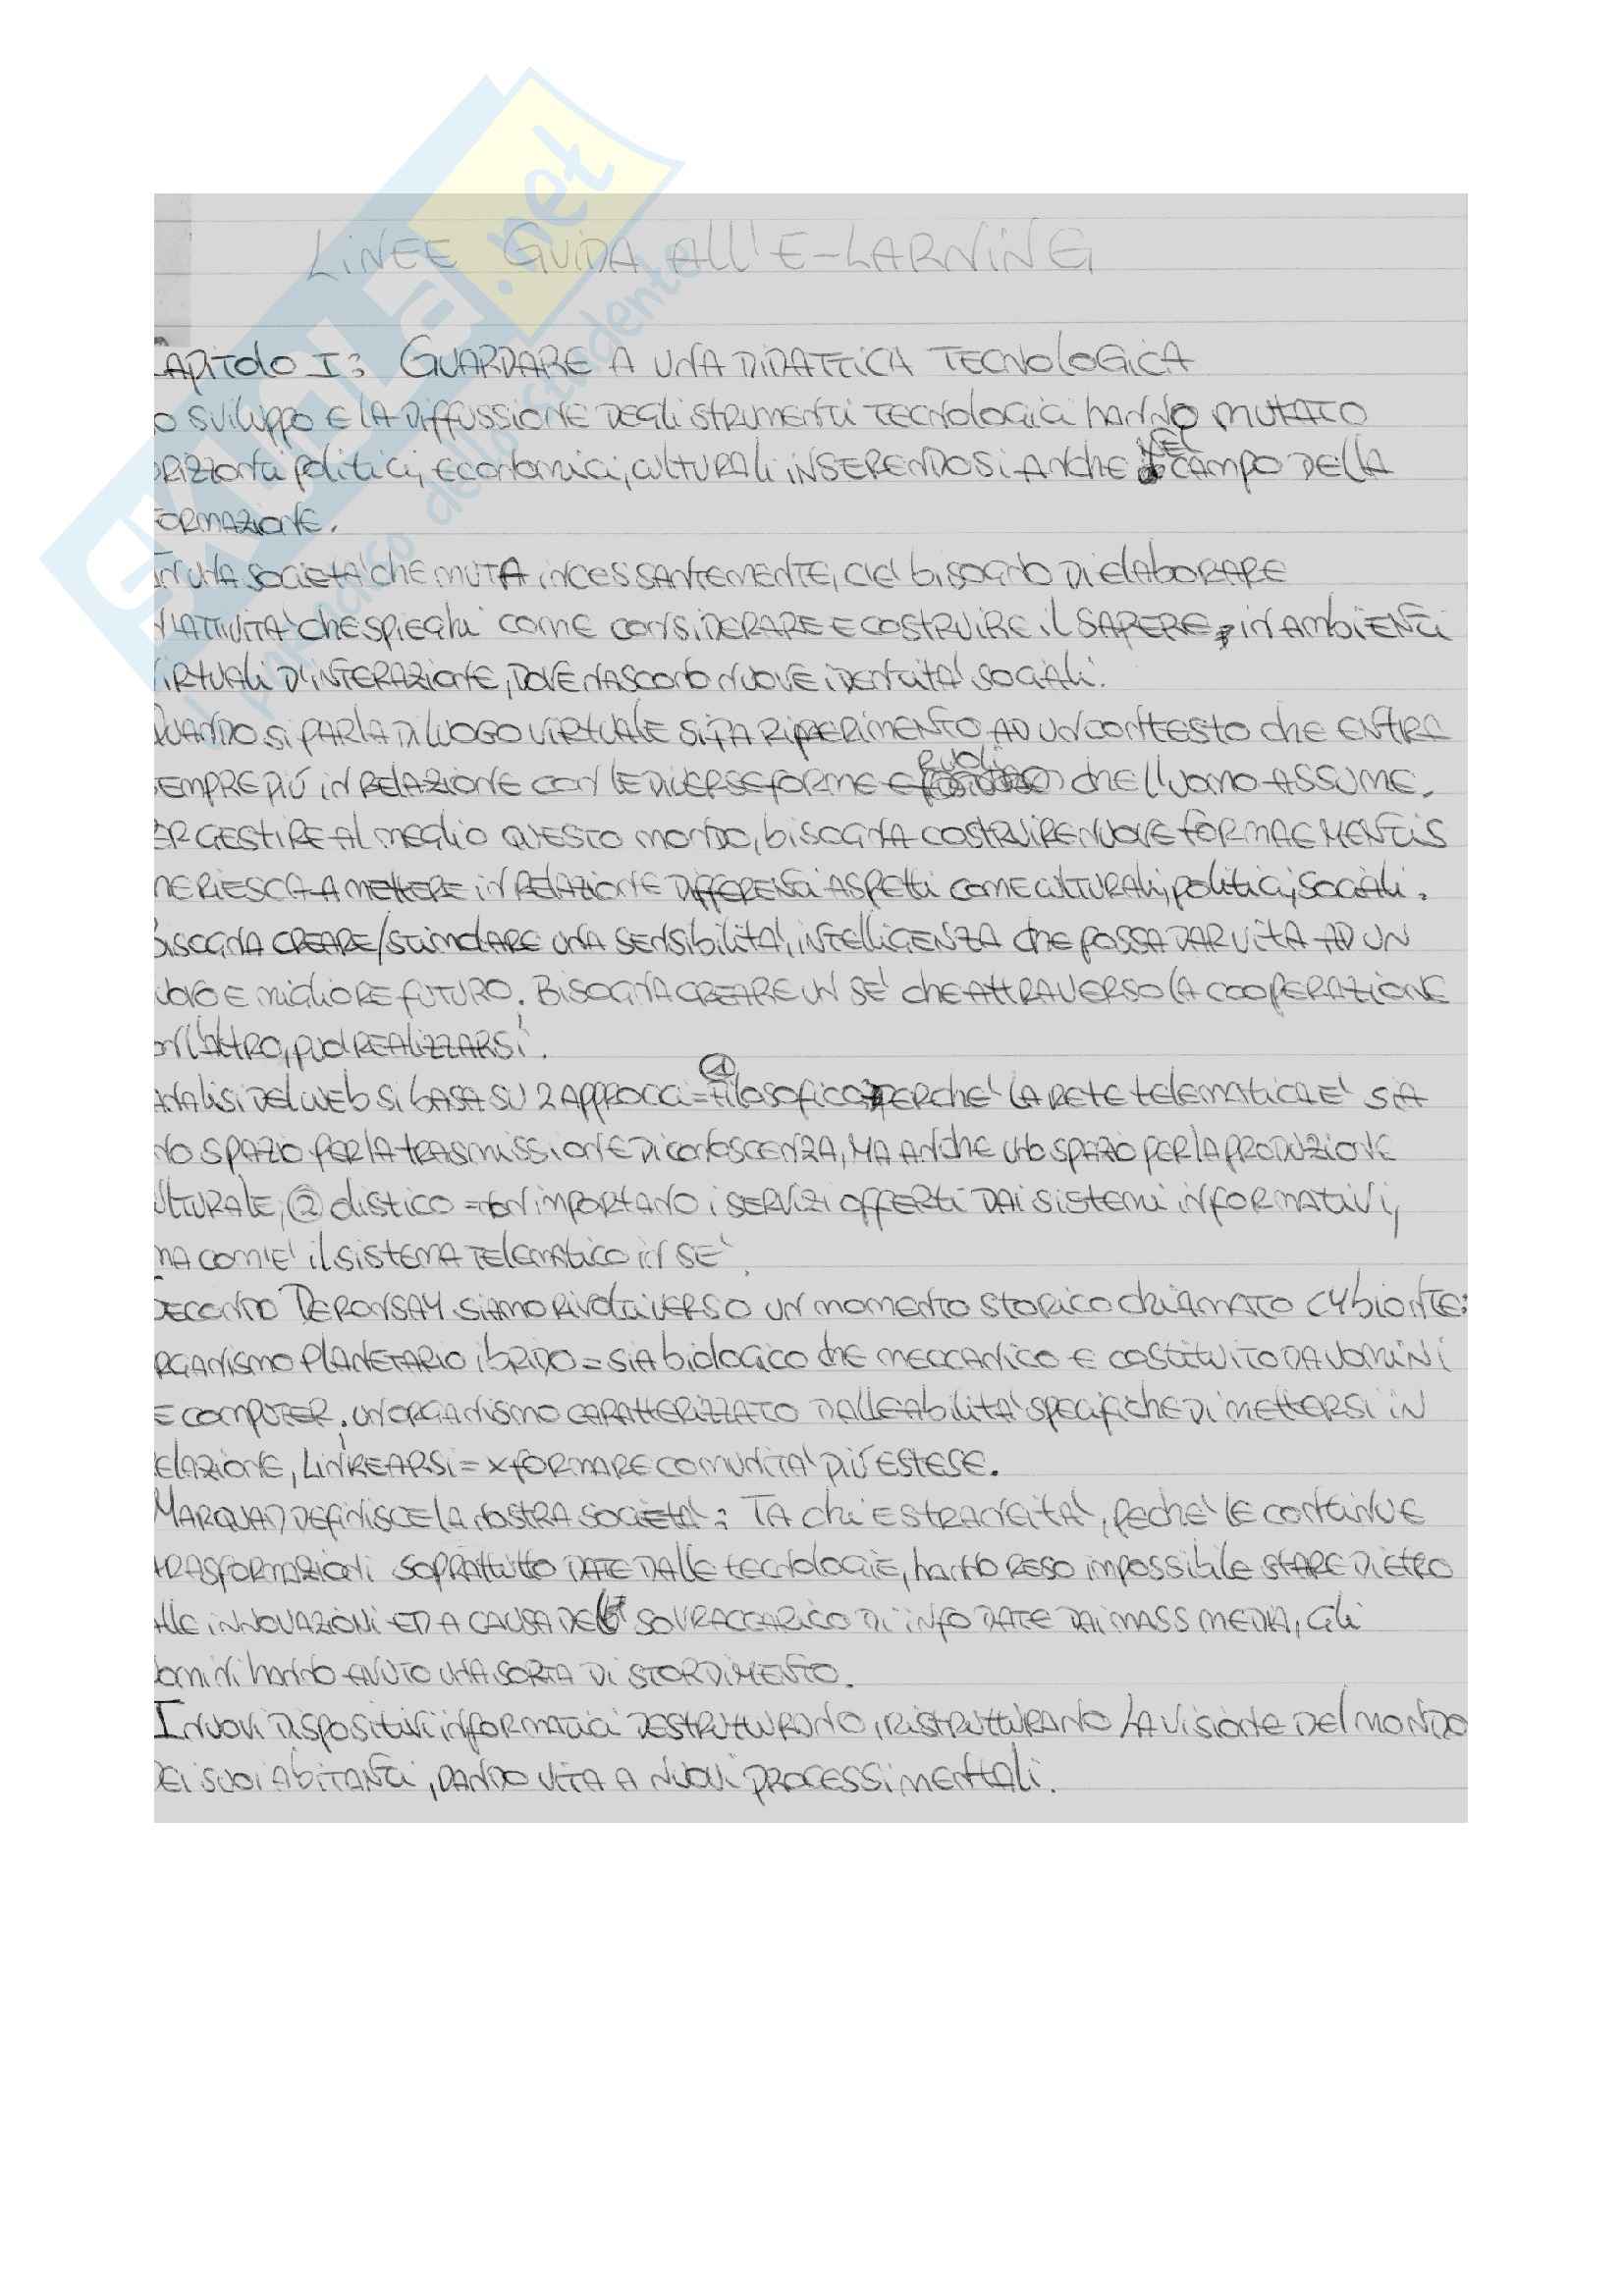 LINEE GUIDA All'E-LARNING
CAPITolo I: GUARDARE A UNA DIDATTICA TECNOLOGICA
o SVILUPPO E LA DIFFUSSIONE DEGLI STRUMENTI TECNOLOGICI HANNO MUTATO
ORIZZONTI POLITICI, ECONOMICI, CULTURALI INSERENDOSI ANCHE NEL CAMPO DELLA
FORMAZIONE.
IN UNA SOCIETA' CHE MUTA INCESSANTEMENTE, C'E' BISOGNO DI ELABORARE
N'ATTIVITA' CHE SPIEGHI COME CONSIDERARE E COSTRUIRE IL SAPERE, IN AMBIENTI
VIRTUALI D'INTERAZIONE, DOVE NASCONO NUOVE IDENTITA' SOCIALI.
QUANDO SI PARLA DI LUOGO VIRTUALE SI FA RIFERIMENTO AD UN CONTESTO CHE ENTRA
SEMPRE PIÙ IN RELAZIONE CON LE DIVERSE FORME E RUOLI CHE L'UOMO ASSUME.
ER GESTIRE AL MEGLIO QUESTO MONDO, BISOGNA COSTRUIRE NUOVE FORMAE MENTIS
HE RIESCA A METTERE IN RELAZIONE DIFFERENTI ASPETTI COME CULTURALI, POLITICI, SOCIALI.
BISOGNA CREARE/STIMOLARE UNA SENSIBILITA', INTELLIGENZA CHE POSSA DAR VITA AD UN
UOVO E MIGLIORE FUTURO. BISOGNA CREARE UN SE' CHE ATTRAVERSO LA COOPERAZIONE
ON L'ALTRO, PUO' REALIZZARSI.
ANALISI DEL WEB SI BASA SU 2 APPROCCI = ① FILOSOFICO PERCHE' LA RETE TELEMATICA E' SIA
NO SPAZIO PER LA TRASMISSIONE DI CONOSCENZA, MA ANCHE UNO SPAZIO PER LA PRODUZIONE
ULTURALE, ② OLISTICO = NON IMPORTANO I SERVIZI OFFERTI DAI SISTEMI INFORMATIVI,
MA COM'E' IL SISTEMA TELEMATICO IN SE'.
SECONDO DERONSAY SIAMO RIVOLTI VERSO UN MOMENTO STORICO CHIAMATO CYBIONTE:
RGANISMO PLANETARIO IBRIDO = SIA BIOLOGICO CHE MECCANICO E COSTITUITO DA UOMINI
E COMPUTER. UN ORGANISMO CARATTERIZZATO DALLE ABILITA' SPECIFICHE DI METTERSI IN
ELAZIONE, LINKEARSI = x FORMARE COMUNITA' PIÙ ESTESE.
MARQUAD DEFINISCE LA NOSTRA SOCIETA': TACHI ESTRANEITA', PECHE' LE CONTINUE
TRASFORMAZIONI SOPRATTUTTO DATE DALLE TECNOLOGIE, HANNO RESO IMPOSSIBILE STARE DIETRO
ALLE INNOVAZIONI ED A CAUSA DEL SOVRACCARICO DI INFO DATE DAI MASS MEDIA, GLI
OMINI HANNO AVUTO UNA SORTA DI STORDIMENTO.
I NUOVI DISPOSITIVI INFORMATICI DESTRUTTURANO, RISTRUTTURANO LA VISIONE DEL MONDO
DEI SUOI ABITANTI, DANDO VITA A NUOVI PROCESSI MENTALI.